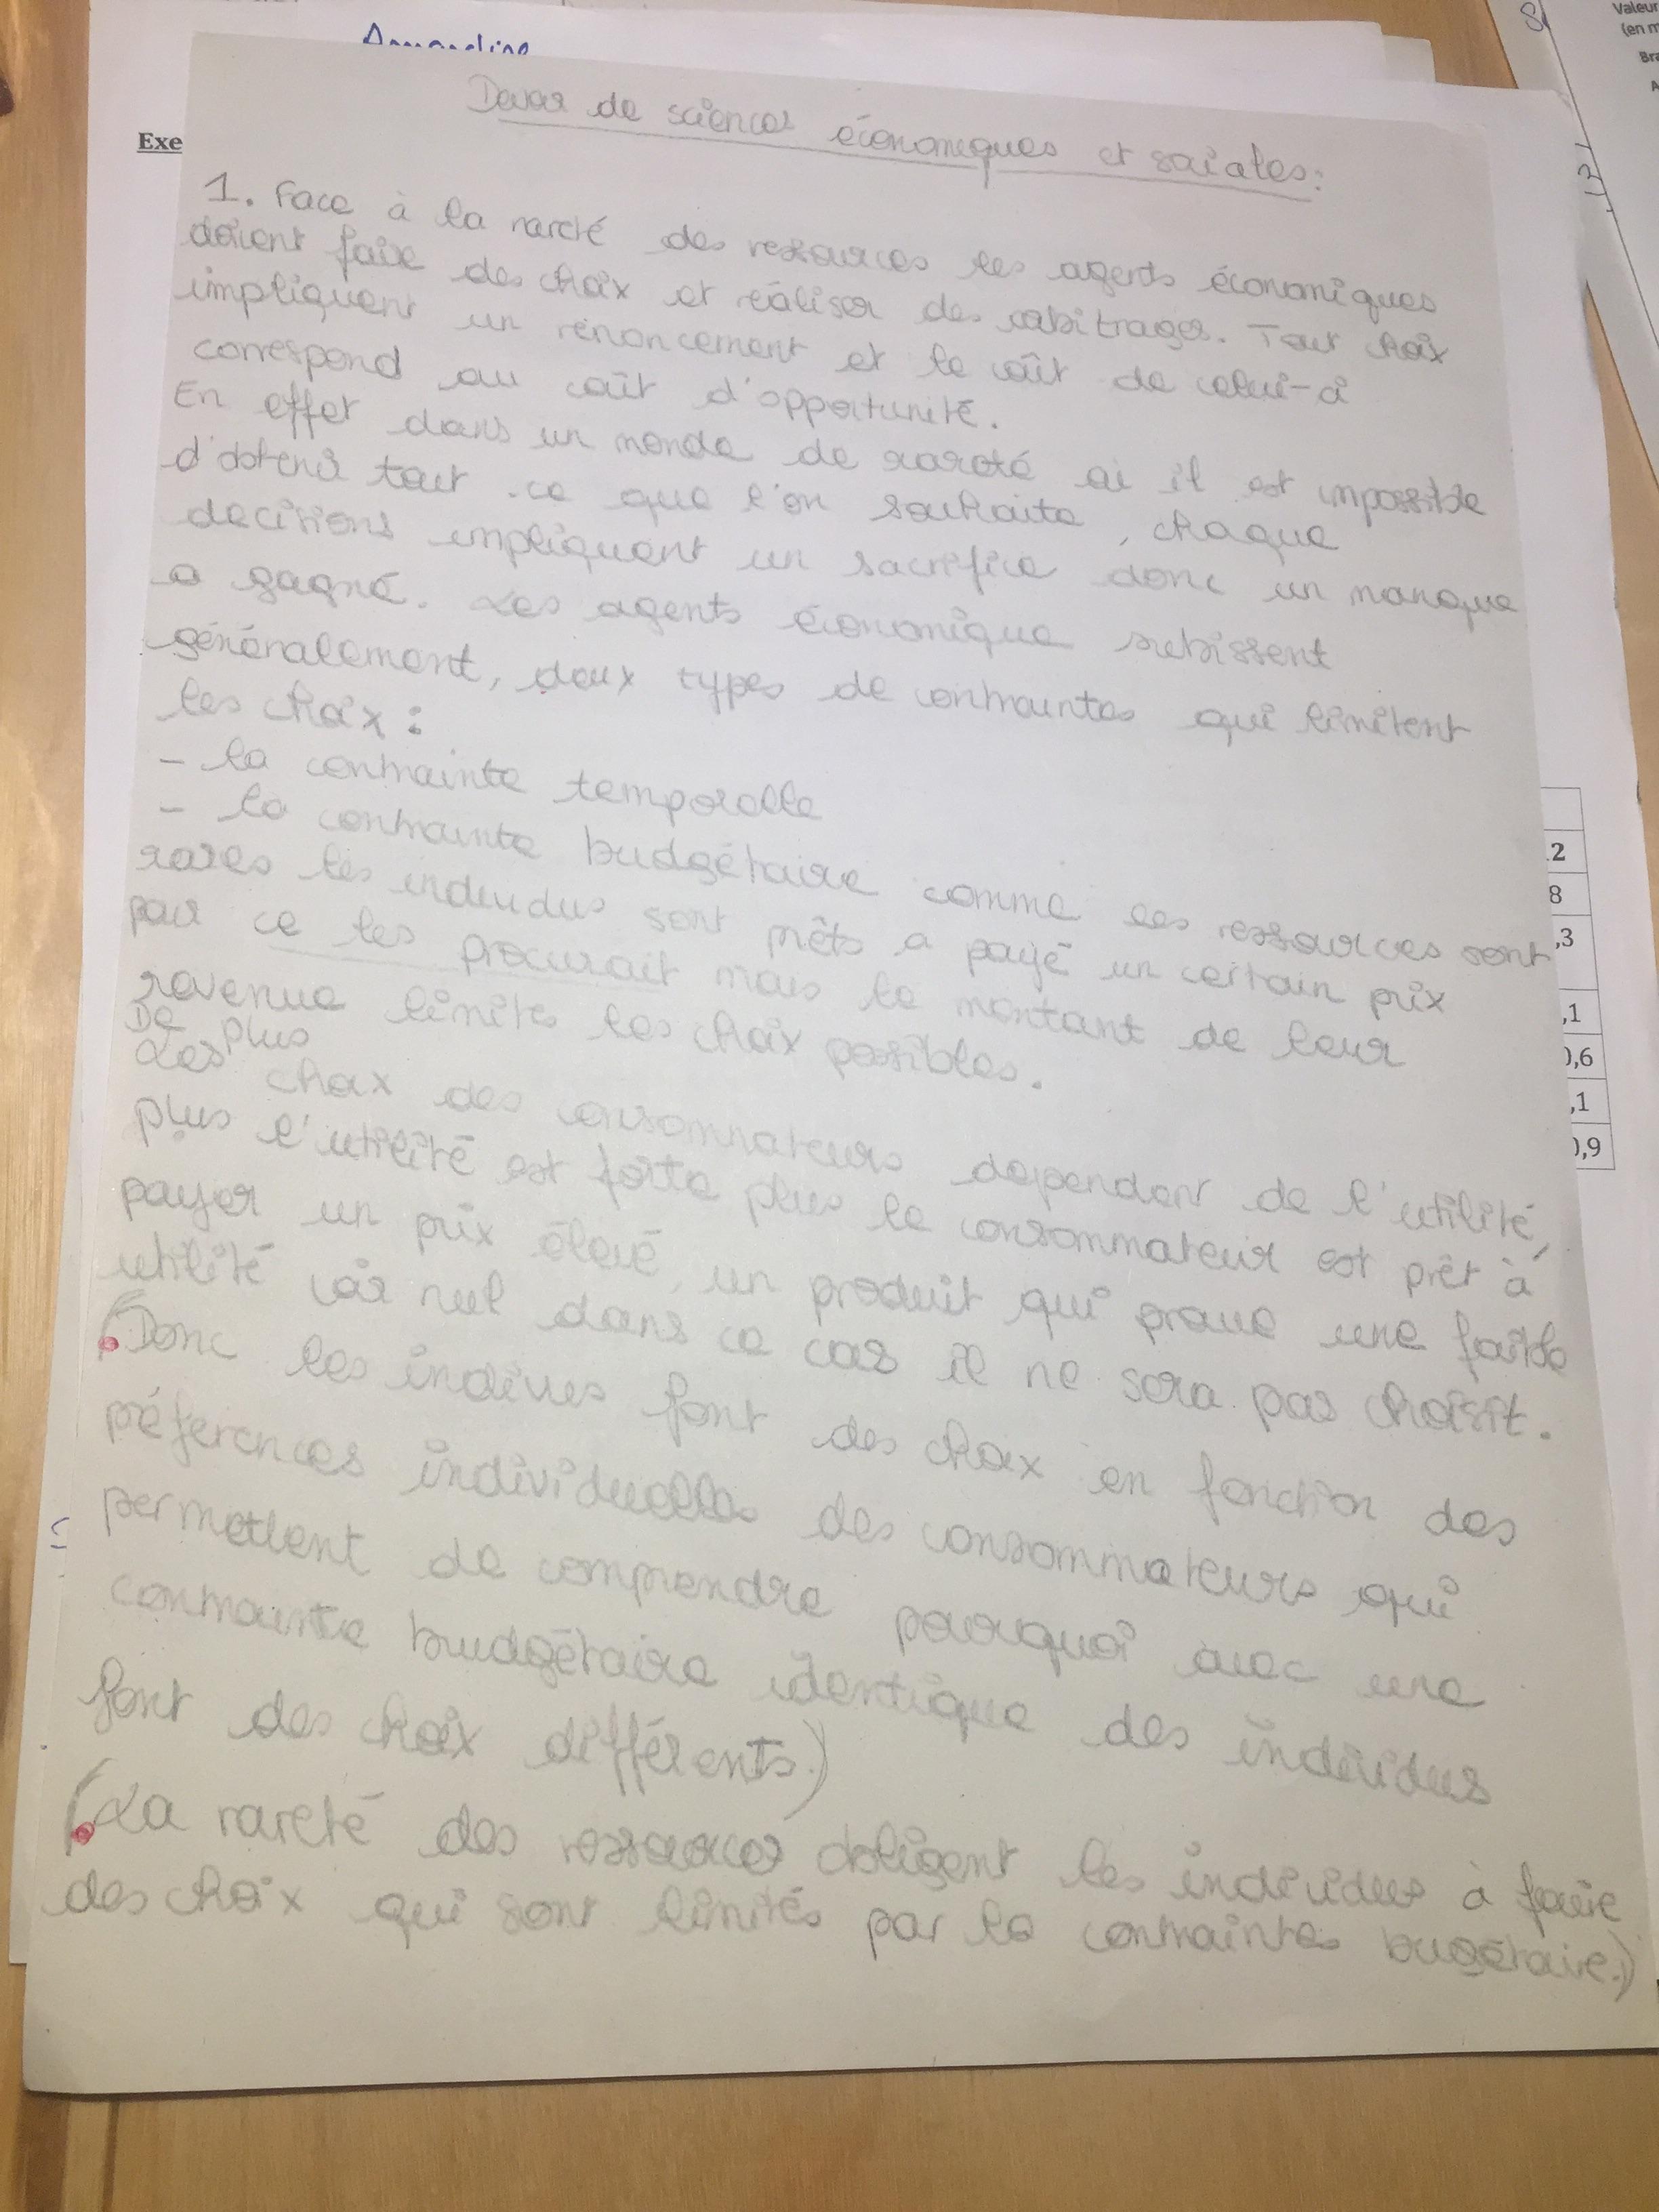 Amandine
Exe
Valeur
(en m
Bra
Devoir de sciences économiques et sociales:
1. Face à la rareté des ressources les agents économiques
doivent faire des choix et réaliser des arbitrages. Tout choix
impliquent un renoncement et le coût de celui-ci
correspond au coût d'opportunité.
En effet dans un monde de rareté où il est impossible
d'obtenir tout ce que l'on souhaite, chaque
decisions impliquent un sacrifice donc un manque
a gagné. Les agents économique subissent
généralement, deux types de contraintes qui limitent
les choix :
- la contrainte temporelle
- la contrainte budgétaire comme les ressources sont
rares les individus sont prêts a payé un certain prix
pour ce les procurait mais le montant de leur
revenue limites les choix possibles.
De plus
Les choix des consommateurs dependent de l'utilité,
plus l'utilité est forte plus le consommateur est prêt à
payer un prix élevé, un produit qui prouve une faible
utilité voir nul dans ce cas il ne sera pas choisit.
(Donc les indivues font des choix en fonction des
préferences individuelles des consommateurs qui
permettent de comprendre pourquoi avec une
contrainte budgétaire identique des individus
font des choix différents.)
(La rareté des ressources obligent les individus à faire
des choix qui sont limités par la contraintes bugétaire.)
2
8
,3
,1
0,6
,1
0,9